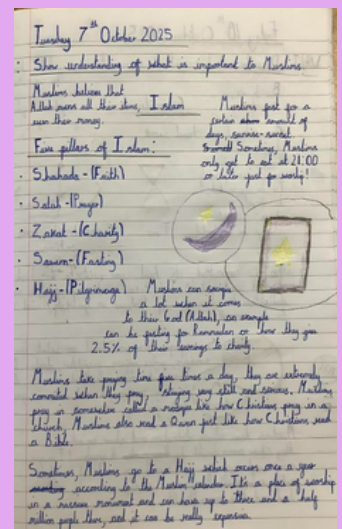 Tuesday 7th October 2025
Show understanding of what is important to Muslims.
Muslims believe that
Allah owns all their items,
even their money.
Islam
Muslims fast for a
certain amount of
days, sunrise-sunset.
Sometimes, Muslims
only get to eat at 21:00
or later just for worship!
Five pillars of Islam:
• Shahada - (Faith)
• Salah - (Prayer)
• Zakat - (Charity)
• Sawm - (Fasting)
• Hajj - (Pilgrimage)
Muslims can sacrifice
a lot when it comes
to their God (Allah), an example
can be fasting for Ramadan or how they give
2.5% of their earnings to charity.
Muslims take praying time five times a day, they are extremely
commited when they pray, staying very still and serious. Muslims
pray in somewhere called a mosque like how Christians pray in a
church. Muslims also read a Quran just like how Christians read
a Bible.
Sometimes, Muslims go to a Hajj which occurs once a year
according to the Muslim calendar. It's a place of worship
in a massive monument and can have up to three and a half
million people there, and it can be really expensive.